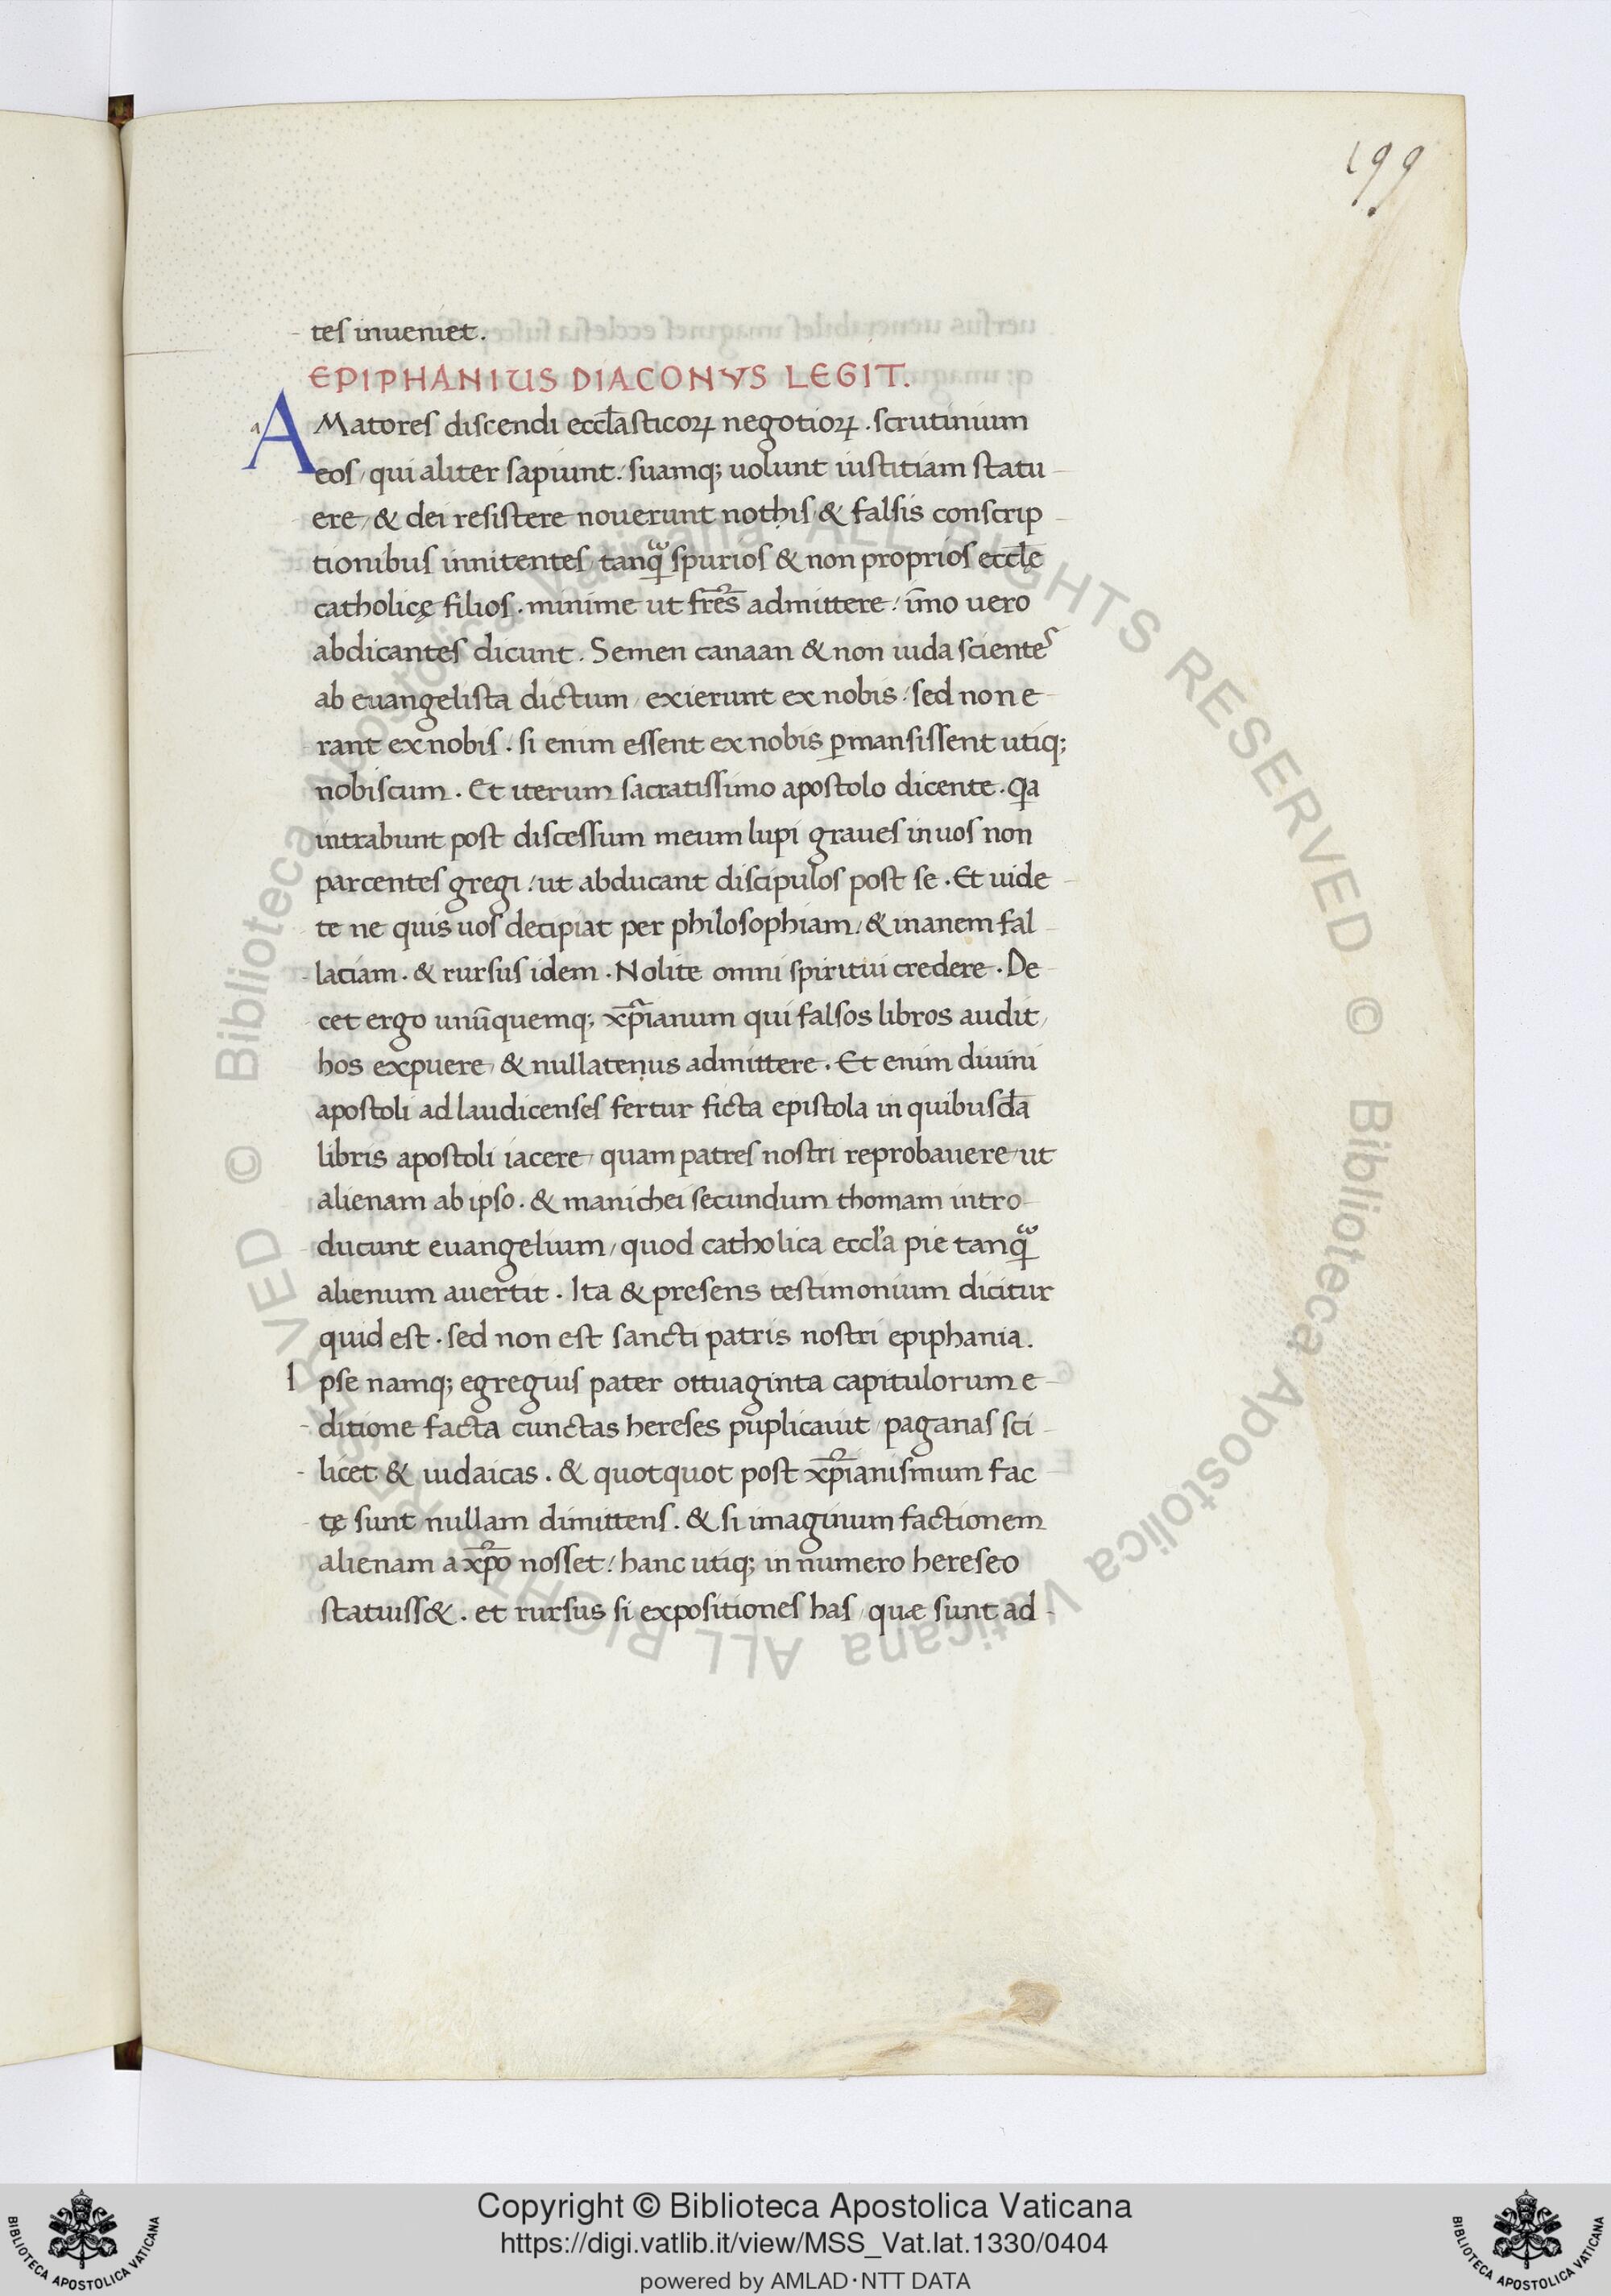 199
tes inueniet.
EPIPHANIUS DIACONVS LEGIT.
AMatores discendi eccl̅asticoꝝ negotioꝝ. scrutinium
eos, qui aliter sapiunt: suamq; uolunt iustitiam statu
ere, & dei resistere nouerunt nothis & falsis conscrip
tionibus innitentes, tanq̃ spurios & non proprios eccl̅ę
catholicę filios. minime ut fr̅es admittere: im̅o uero
abdicantes dicunt. Semen canaan & non iuda scientes
ab euangelista dictum, exierunt ex nobis: sed non e
rant ex nobis. si enim essent ex nobis ꝑmansissent utiq;
nobiscum. Et iterum sacratissimo apostolo dicente. Qa
intrabunt post discessum meum lupi graues in uos non
parcentes gregi: ut abducant discipulos post se. Et uide
te ne quis uos decipiat per philosophiam, & inanem fal
laciam. & rursus idem. Nolite omni spiritui credere. De
cet ergo unu̅quemq; xp̅ianum qui falsos libros audit,
hos expuere, & nullatenus admittere. Et enim diuini
apostoli ad laudicenses fertur ficta epistola in quibusda̅
libris apostoli iacere, quam patres nostri reprobauere, ut
alienam ab ipso. & manichei secundum thomam intro
ducunt euangelium, quod catholica eccl̅a pie tanq̃
alienum auertit. Ita & presens testimonium dicitur
quid est. sed non est sancti patris nostri epiphania.
Ipse namq; egregius pater ottuaginta capitulorum e
ditione facta cunctas hereses puplicauit, paganas sci
licet & iudaicas. & quotquot post xp̅ianismum fac
tę sunt nullam dimittens. & si imaginum factionem
alienam a xp̅o nosset: hanc utiq; in numero hereseo
statuiss&. et rursus si expositiones has, quæ sunt ad
© Biblioteca Apostolica Vaticana ALL RIGHTS RESERVED © Biblioteca Apostolica Vaticana ALL RIGHTS RESERVED
Copyright © Biblioteca Apostolica Vaticana
https://digi.vatlib.it/view/MSS_Vat.lat.1330/0404
powered by AMLAD·NTT DATA
BIBLIOTECA APOSTOLICA VATICANA
BIBLIOTECA APOSTOLICA VATICANA